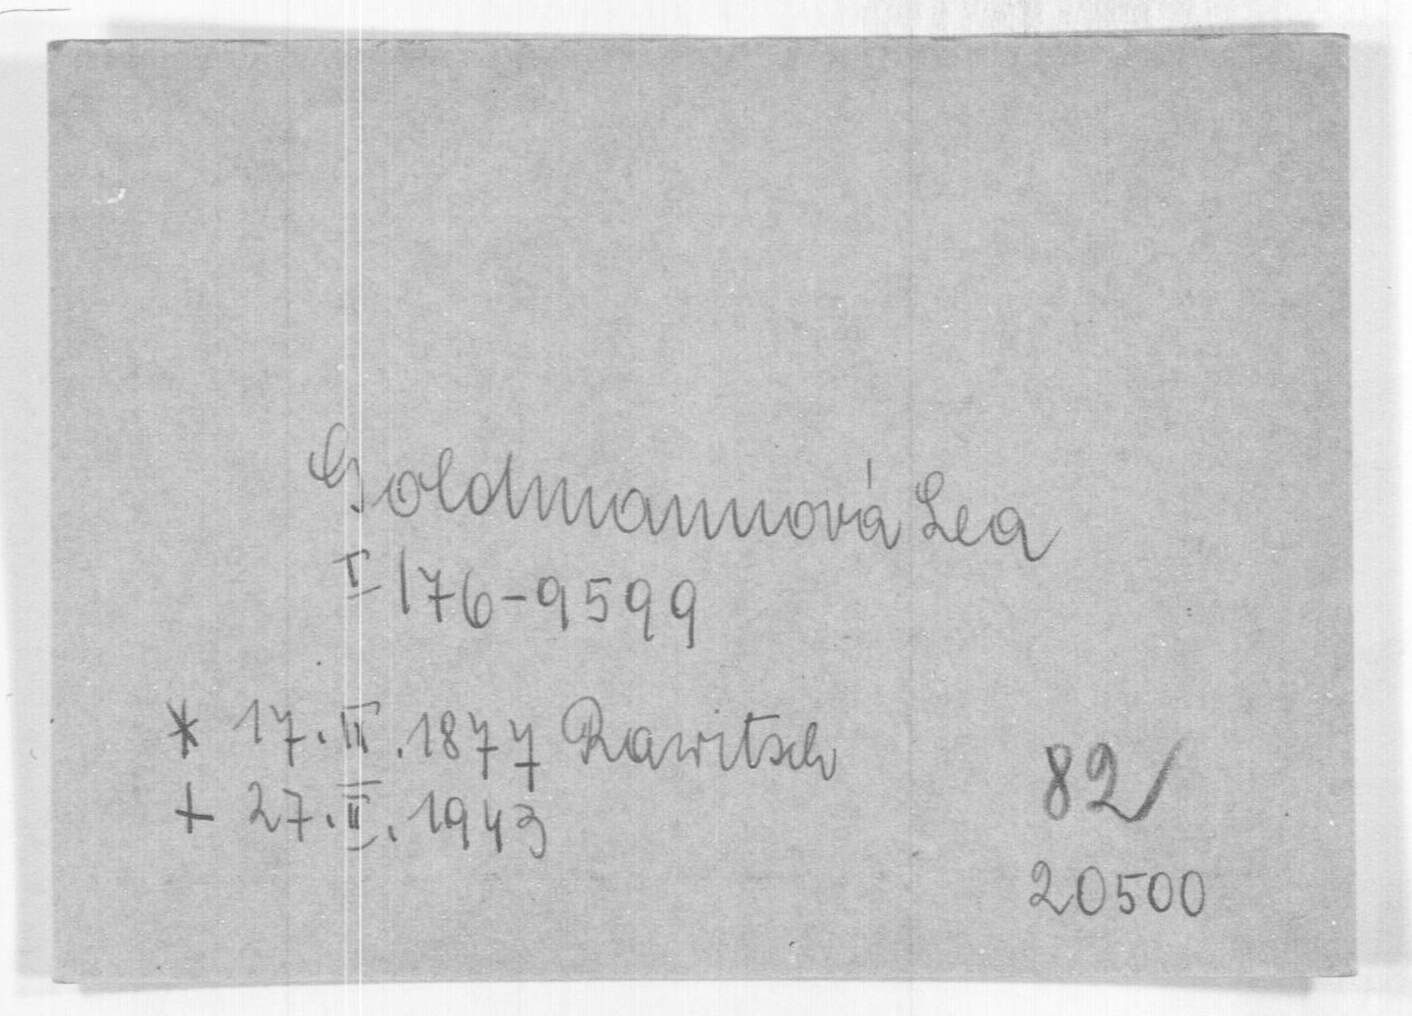 Goldmannová Lea
I/76-9599
* 17.III.1877 Rawitsch
+ 27.II.1943
82/
20500